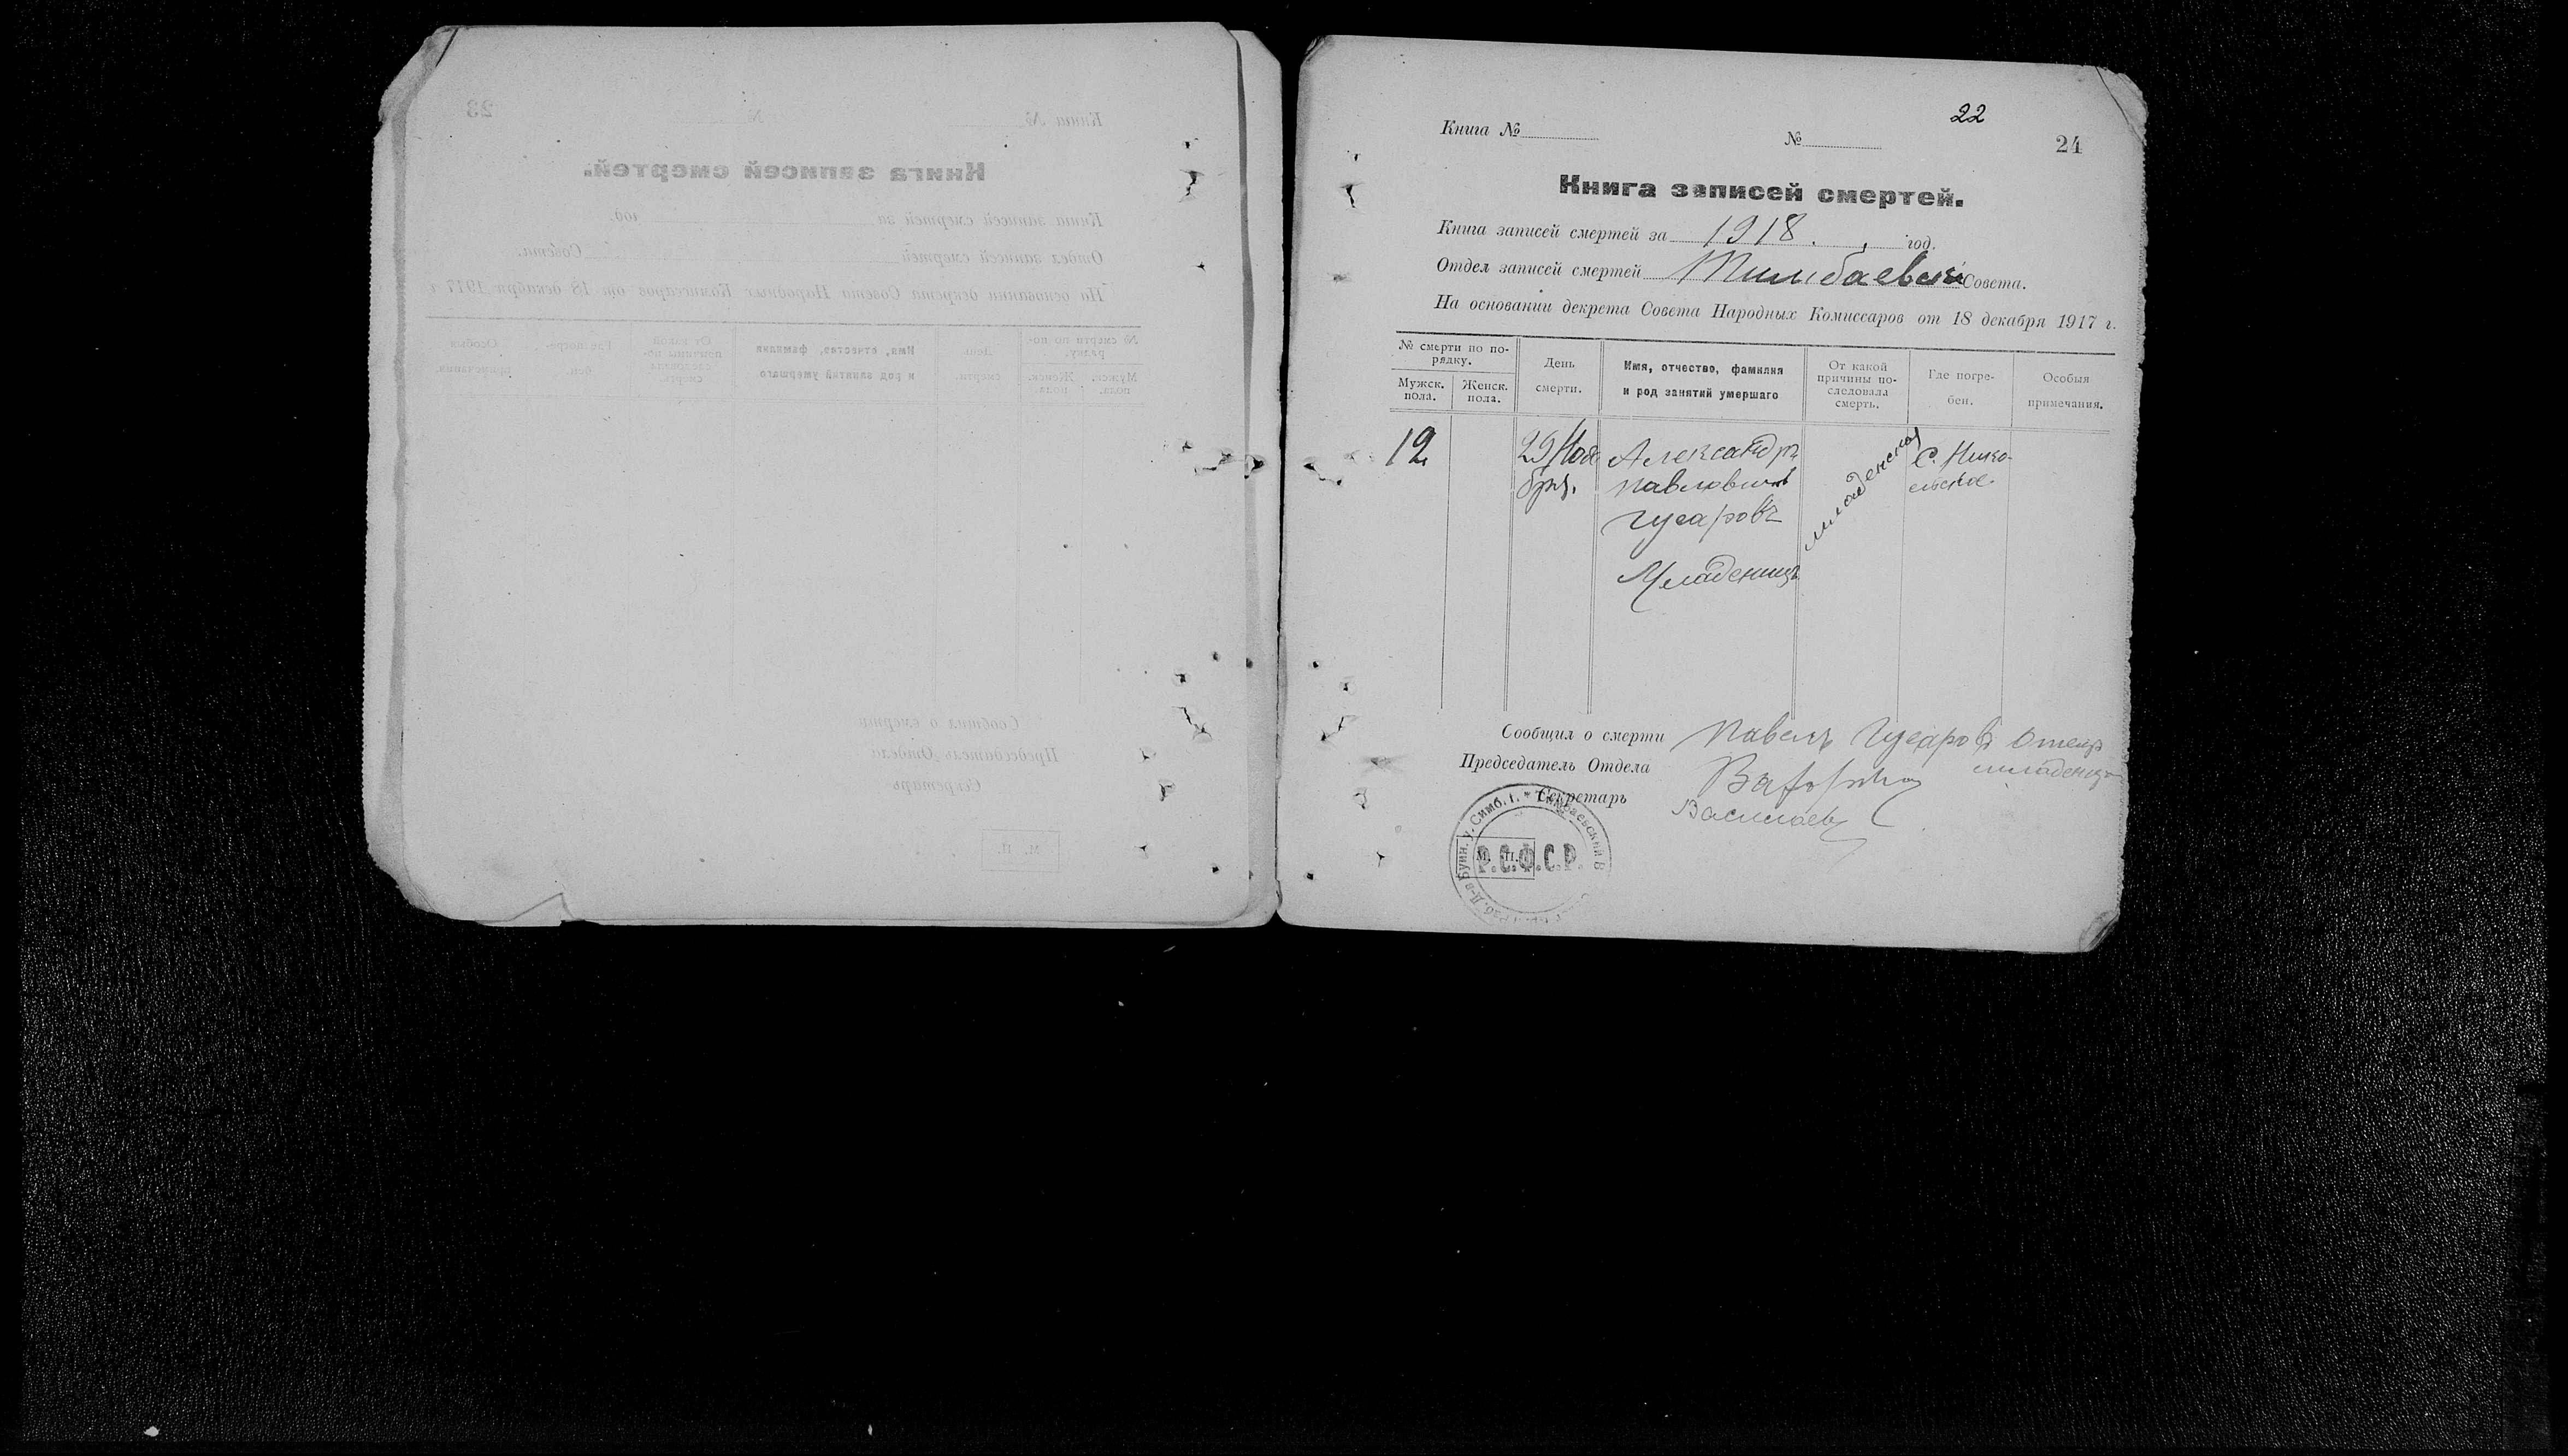 22
Книга № № 24
Книга записей смертей.
Книга записей смертей за 1918. год.
Отдел записей смертей Тимбаевский Совета.
На основании декрета Совета Народных Комиссаров от 18 декабря 1917 г.
№ смерти по по-
рядку.
Мужск.
пола.
Женск.
пола.
День
смерти.
Имя, отчество, фамилия
и род занятий умершаго
От какой
причины по-
следовала
смерть.
Где погре-
бен.
Особыя
примечания.
12
29 Ноя
бря.
Александръ
Павловичъ
Гусаровъ
Младенецъ
младенская
С. Нико-
льское.
Сообщил о смерти Павелъ Гусаровъ Отецъ
младенца
Председатель Отдела
Секретарь
М. П.
Р.С.Ф.С.Р.